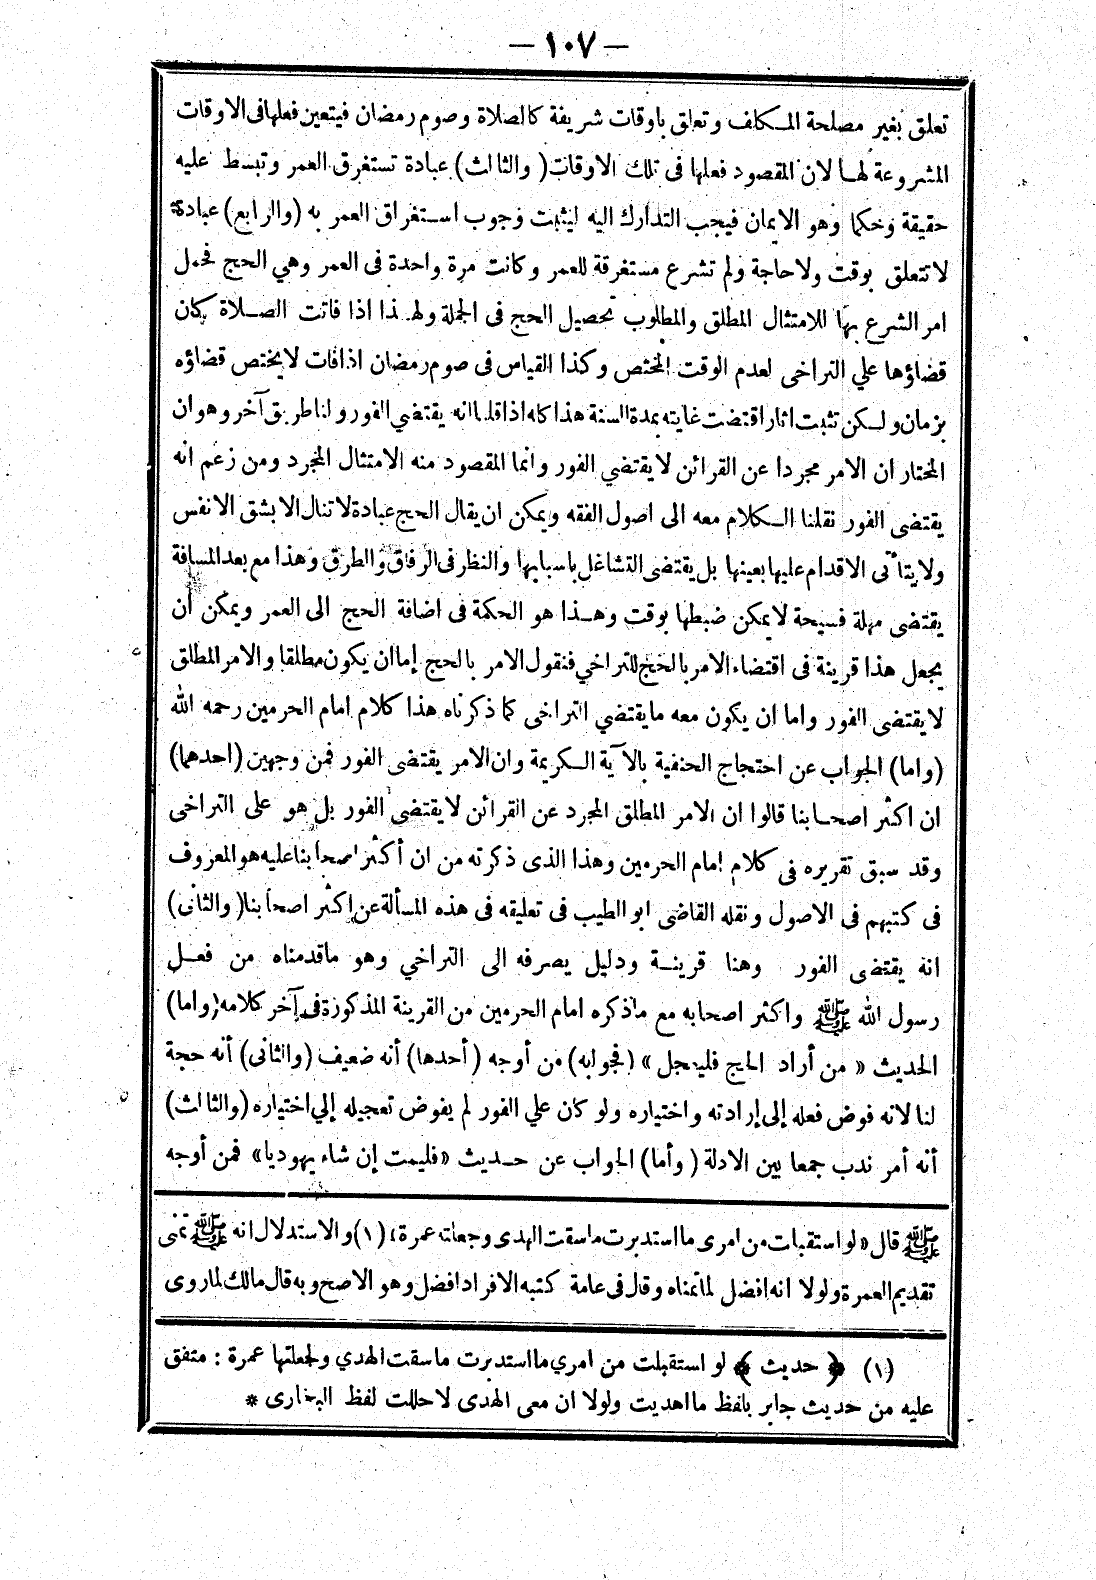 — ١٠٧ —
تعلق بغير مصلحة المكلف وتعلق باوقات شريفة كالصلاة وصوم رمضان فيتعين فعلها فى الاوقات
المشروعة لها لان المقصود فعلها فى تلك الاوقات (والثالث) عبادة تستغرق العمر وتبسط عليه
حقيقة وحكما وهو الايمان فيجب التدارك اليه ليثبت وجوب استغراق العمر به (والرابع) عبادة
لا تتعلق بوقت ولا حاجة ولم تشرع مستغرقة للعمر وكانت مرة واحدة فى العمر وهي الحج فحمل
امر الشرع بها للامتثال المطلق والمطلوب تحصيل الحج فى الجملة ولهذا اذا فاتت الصلاة كان
قضاؤها علي التراخى لعدم الوقت المختص وكذا القياس فى صوم رمضان اذا فات لا يختص قضاؤه
بزمان ولكن تثبت اثار اقتضت غايته بمدة السنة هذا كله اذا قلنا انه يقتضي الفور ولنا طريق آخر وهو ان
المختار ان الامر مجردا عن القرائن لا يقتضي الفور وانما المقصود منه الامتثال المجرد ومن زعم انه
يقتضى الفور نقلنا الكلام معه الى اصول الفقه ويمكن ان يقال الحج عبادة لا تنال الا بشق الانفس
ولا يتأتى الاقدام عليها بعينها بل يقتضى التشاغل باسبابها والنظر فى الرفاق والطرق وهذا مع بعد المسافة
يقتضى مهلة فسيحة لا يمكن ضبطها بوقت وهذا هو الحكمة فى اضافة الحج الى العمر ويمكن أن
يجعل هذا قرينة فى اقتضاء الامر بالحج للتراخي فنقول الامر بالحج إما ان يكون مطلقا والامر المطلق
لا يقتضى الفور واما ان يكون معه ما يقتضي التراخى كما ذكرناه هذا كلام امام الحرمين رحمه الله
(واما) الجواب عن احتجاج الحنفية بالآية الكريمة وان الامر يقتضى الفور فمن وجهين (احدهما)
ان اكثر اصحابنا قالوا ان الامر المطلق المجرد عن القرائن لا يقتضى الفور بل هو على التراخى
وقد سبق تقريره فى كلام امام الحرمين وهذا الذى ذكرته من ان أكثر اصحابنا عليه هو المعروف
فى كتبهم فى الاصول ونقله القاضى ابو الطيب فى تعليقه فى هذه المسألة عن اكثر اصحابنا (والثانى)
انه يقتضى الفور وهنا قرينة ودليل يصرفه الى التراخي وهو ما قدمناه من فعل
رسول الله ﷺ واكثر اصحابه مع ما ذكره امام الحرمين من القرينة المذكورة فى آخر كلامه (واما)
الحديث « من أراد الحج فليعجل » (فجوابه) من أوجه (أحدها) أنه ضعيف (والثانى) أنه حجة
لنا لانه فوض فعله إلى إرادته واختياره ولو كان علي الفور لم يفوض تعجيله إلي اختياره (والثالث)
أنه أمر ندب جمعا بين الادلة (وأما) الجواب عن حديث «فليمت إن شاء يهوديا» فمن أوجه
ﷺ قال «لو استقبلت من امرى ما استدبرت ما سقت الهدى وجعلته عمرة» (١) والاستدلال انه ﷺ تمنى
تقديم العمرة ولولا انه افضل لما تمناه وقال فى عامة كتبه الافراد افضل وهو الاصح وبه قال مالك لما روى
(١) ﴿ حديث ﴾ لو استقبلت من امري ما استدبرت ما سقت الهدي ولجعلتها عمرة : متفق
عليه من حديث جابر بلفظ ما اهديت ولولا ان معى الهدى لاحللت لفظ البخارى *